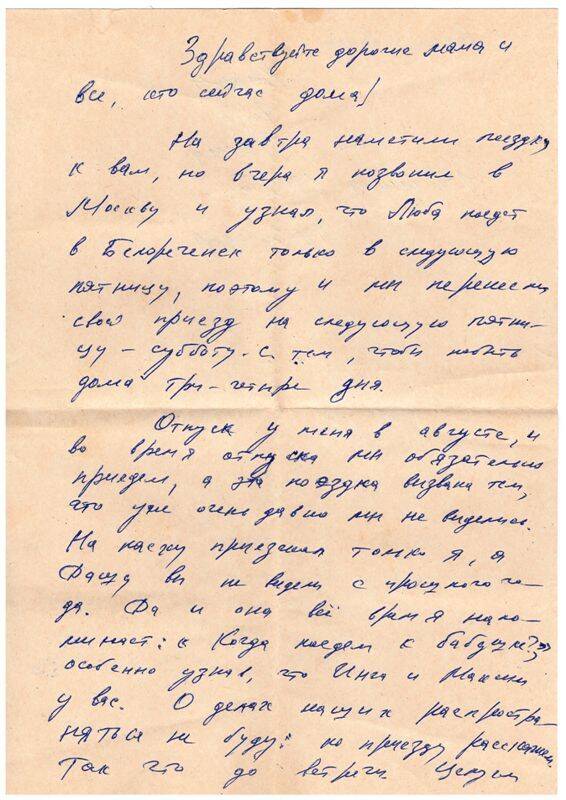 Здравствуйте дорогие мама и
все, кто сейчас дома!
На завтра наметили поездку
к вам, но вчера я позвонил в
Москву и узнал, что Люба поедет
в Белореченск только в следующую
пятницу, поэтому и мы перенесли
свой приезд на следующую пятни-
цу – субботу. С тем, чтобы побыть
дома три-четыре дня.
Отпуск у меня в августе, и
во время отпуска мы обязательно
приедем, а эта поездка вызвана тем,
что уже очень давно мы не виделись.
На пасху приезжал только я, а
Дашу вы не видели с прошлого го-
да. Да и она всё время напо-
минает: «Когда поедем к бабушке?»,
особенно узнав, что Инга и Максим
у вас. О делах наших распростра-
няться не буду: по приезду расскажем.
Так что до встречи. Целуем